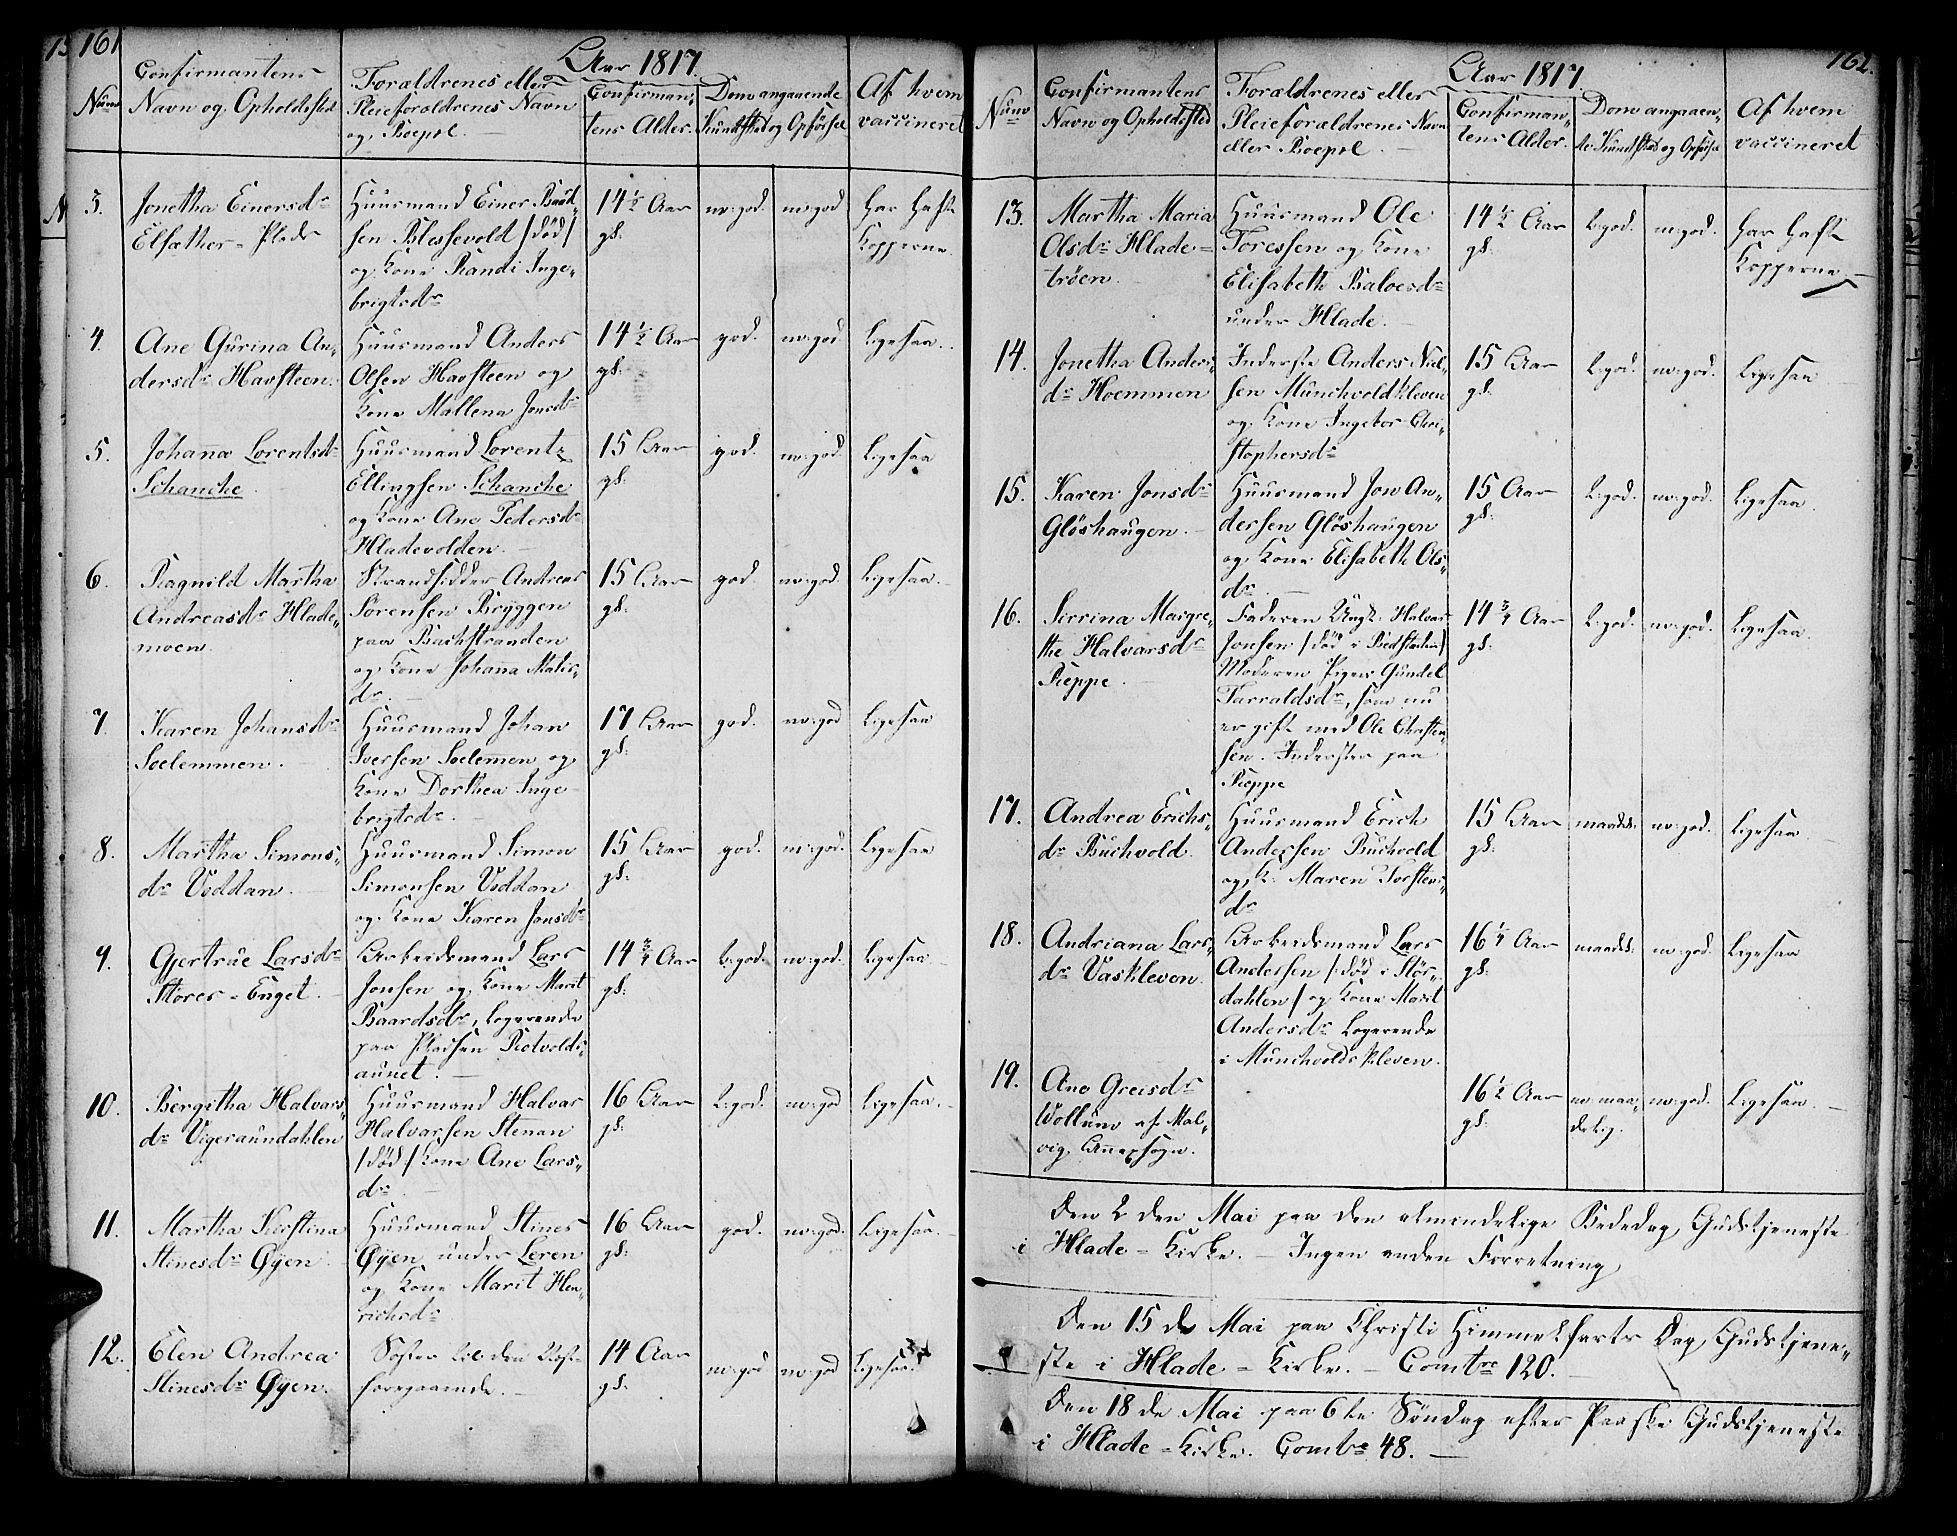 161
Aar 1817.
Num
Confirmantens
Navn og Opholdssted
Forældrenes eller
Pleieforældrenes Navn
og Boepæl.
Confirman-
tens Alder.
Dom angaaende
Kundskab og Opførsel
Af hvem
vaccineret
3.
Jonetha Einersdr
Elsæther-Plads
Huusmand Einer Baad-
sen Blessevold /død/
og Kone Randi Inge-
brigtsdr
14 1/2 Aar
gl:
m:god.
m:god
har hafte
Kopperne
4.
Ane Gurina An-
dersdr Havsteen.
Huusmand Anders
Olsen Havsteen og
Kone Mallena Jonsdr
14 1/2 Aar
gl:
god.
m:god
Ligesaa.
5.
Johanna Lorentsdr
Schanche.
Huusmand Lorentz
Ellingsen Schanche
og Kone Ane Pedersdr
Hladevolden.
15 Aar
gl:
god.
m:god.
Ligesaa
6.
Ragnild Martha
Andreasdr Hlade-
moen.
Strandsidder Andreas
Sørensen Bryggen
paa Bachstranden
og Kone Johanna Matis-
dr.
15 Aar
gl:
god.
m:god.
Ligesaa.
7.
Karen Johansdr
Soelemmen.
Huusmand Johan
Iversen Soelemmen og
Kone Dorthea Inge-
brigtsdr.
17 Aar
gl:
god.
m:god
Ligesaa
8.
Martha Simons-
dr Uddan.
Huusmand Simon
Simonsen Uddan
og Kone Karen Jonsdr
15 Aar
gl:
god.
m:god.
Ligesaa
9.
Gjertrue Larsdr
Støres-Enget.
Arbeidsmand Lars
Jonsen og Kone Marit
Baardsdr, logerende
paa Pladsen Rotvolds-
aunet.
14 3/4 Aar
gl:
L:god.
m:god.
Ligesaa
10.
Bergitha Halvars-
dr Vigeraundahlen
Huusmand Halvar
Halvarsen Stenan
/død/ Kone Ane Lars-
dr.
16 Aar
gl:
L:god.
m:god
Ligesaa.
11.
Martha Kerstina
Stinesdr Øyen.
Huusmand Stines
Øyen under Leren
og Kone Marit Hen-
richsdr
16 Aar
gl:
god.
m:god.
Ligesaa.
12.
Elen Andrea
Stinesdr Øyen.
Søster til den næst
foregaaende.
14 Aar
gl:
m:god
m:god
Ligesaa.
162.
Aar 1817.
Num
Confirmantens
Navn og Opholdssted
Forældrenes eller
Pleieforældrenes Navn
eller Boepæl.
Confirman-
tens Alder.
Dom angaaen-
de Kundskab og Opførsel
Af hvem
vaccineret
13.
Martha Maria
Olsdr Hlade-
trøen.
Huusmand Ole
Toressen og Kone
Elisabeth Baloesdr
under Hlade.
14 1/2 Aar
gl:
L:god.
m:god.
har hafte
Kopperne
14.
Jonetha Anders-
dr Hoemmen
Inderste Anders Niel-
sen Munchvoldkleven
og Kone Ingebor Chri-
stophersdr
15 Aar
gl:
L:god.
m:god.
Ligesaa
15.
Karen Jonsdr
Gløshaugen.
Huusmand Jon An-
dersen Gløshaugen
og Kone Elisabeth Ols-
dr.
15 Aar
gl:
L:god.
m:god.
Ligesaa.
16.
Sirrina Margre-
the Halvarsdr
Reppe.
Faderen Ungk. Halvar
Jonsen /død i Bedstaden/
Moderen Pigen Gundel
Tarraldsdr, som nu
er gift med Ole Christen-
sen. Inderster paa
Reppe
14 3/4 Aar
gl:
L:god.
m:god.
Ligesaa.
17.
Andrea Erichs-
dr Buchvold.
Huusmand Erich
Andersen Buchvold
og K. Maren Torstens-
dr
15 Aar
gl:
maadel:
m:god.
Ligesaa
18.
Andriana Lars-
dr Vaskleven.
Arbeidsmand Lars
Andersen /død i Stør-
dahlen/ og Kone Marit
Andersdr Logerende
i Munchvoldskleven.
16 1/4 Aar
gl:
maadel:
m:god.
Ligesaa
19.
Ane Greisdr
Wollum af Mal-
vig Annexsogn.
16 1/2 Aar
gl:
m:maa-
delig.
m:god.
Ligesaa.
Den 2 den Mai paa den almindelige Bededag Gudstjeneste
i Hlade-Kirke. - Ingen anden Forretning
Den 15 de Mai paa Christi Himmelfarts Dag Gudstjene-
ste i Hlade-Kirke. - Comtre 120.
Den 18 de Mai paa 6te Søndag efter Paaske Gudstjeneste
i Hlade-Kirke. Comtre 48.